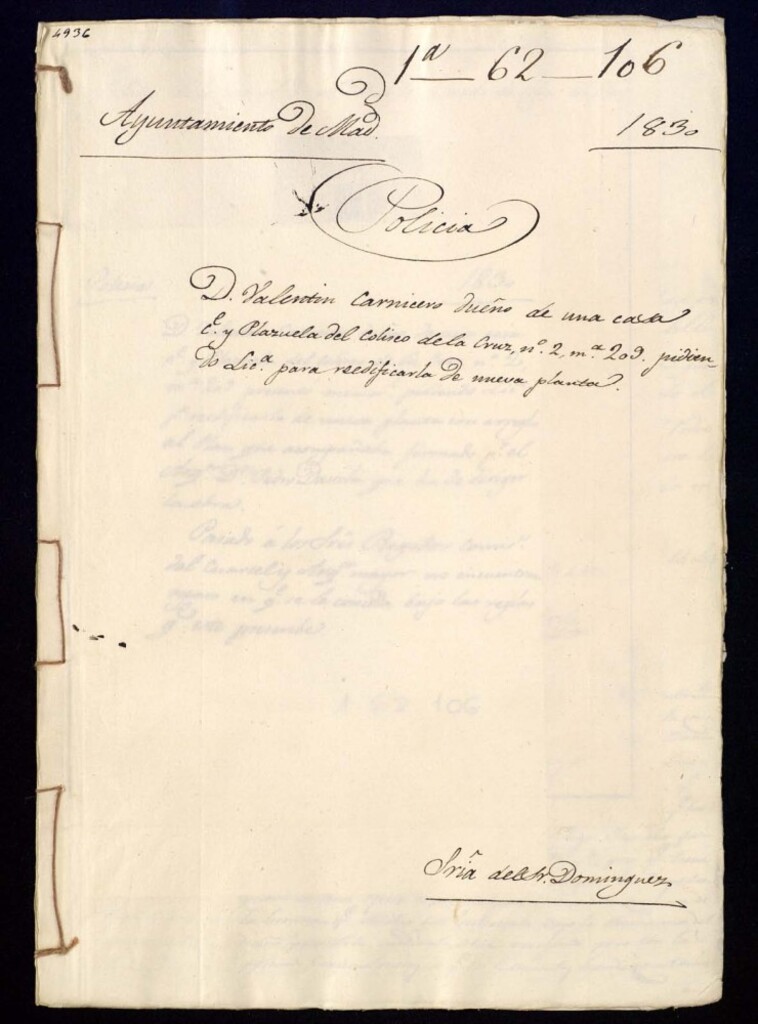 4936
1ª — 62 — 106
Ayuntamiento de Mad.d
1830
Policia
D. Valentin Carnicero dueño de una casa
C.e y Plazuela del Coliseo de la Cruz, n.o 2, m.a 209. pidien-
do Lic.a para reedificarla de nueva planta.
Sria del Sr. Dominguez